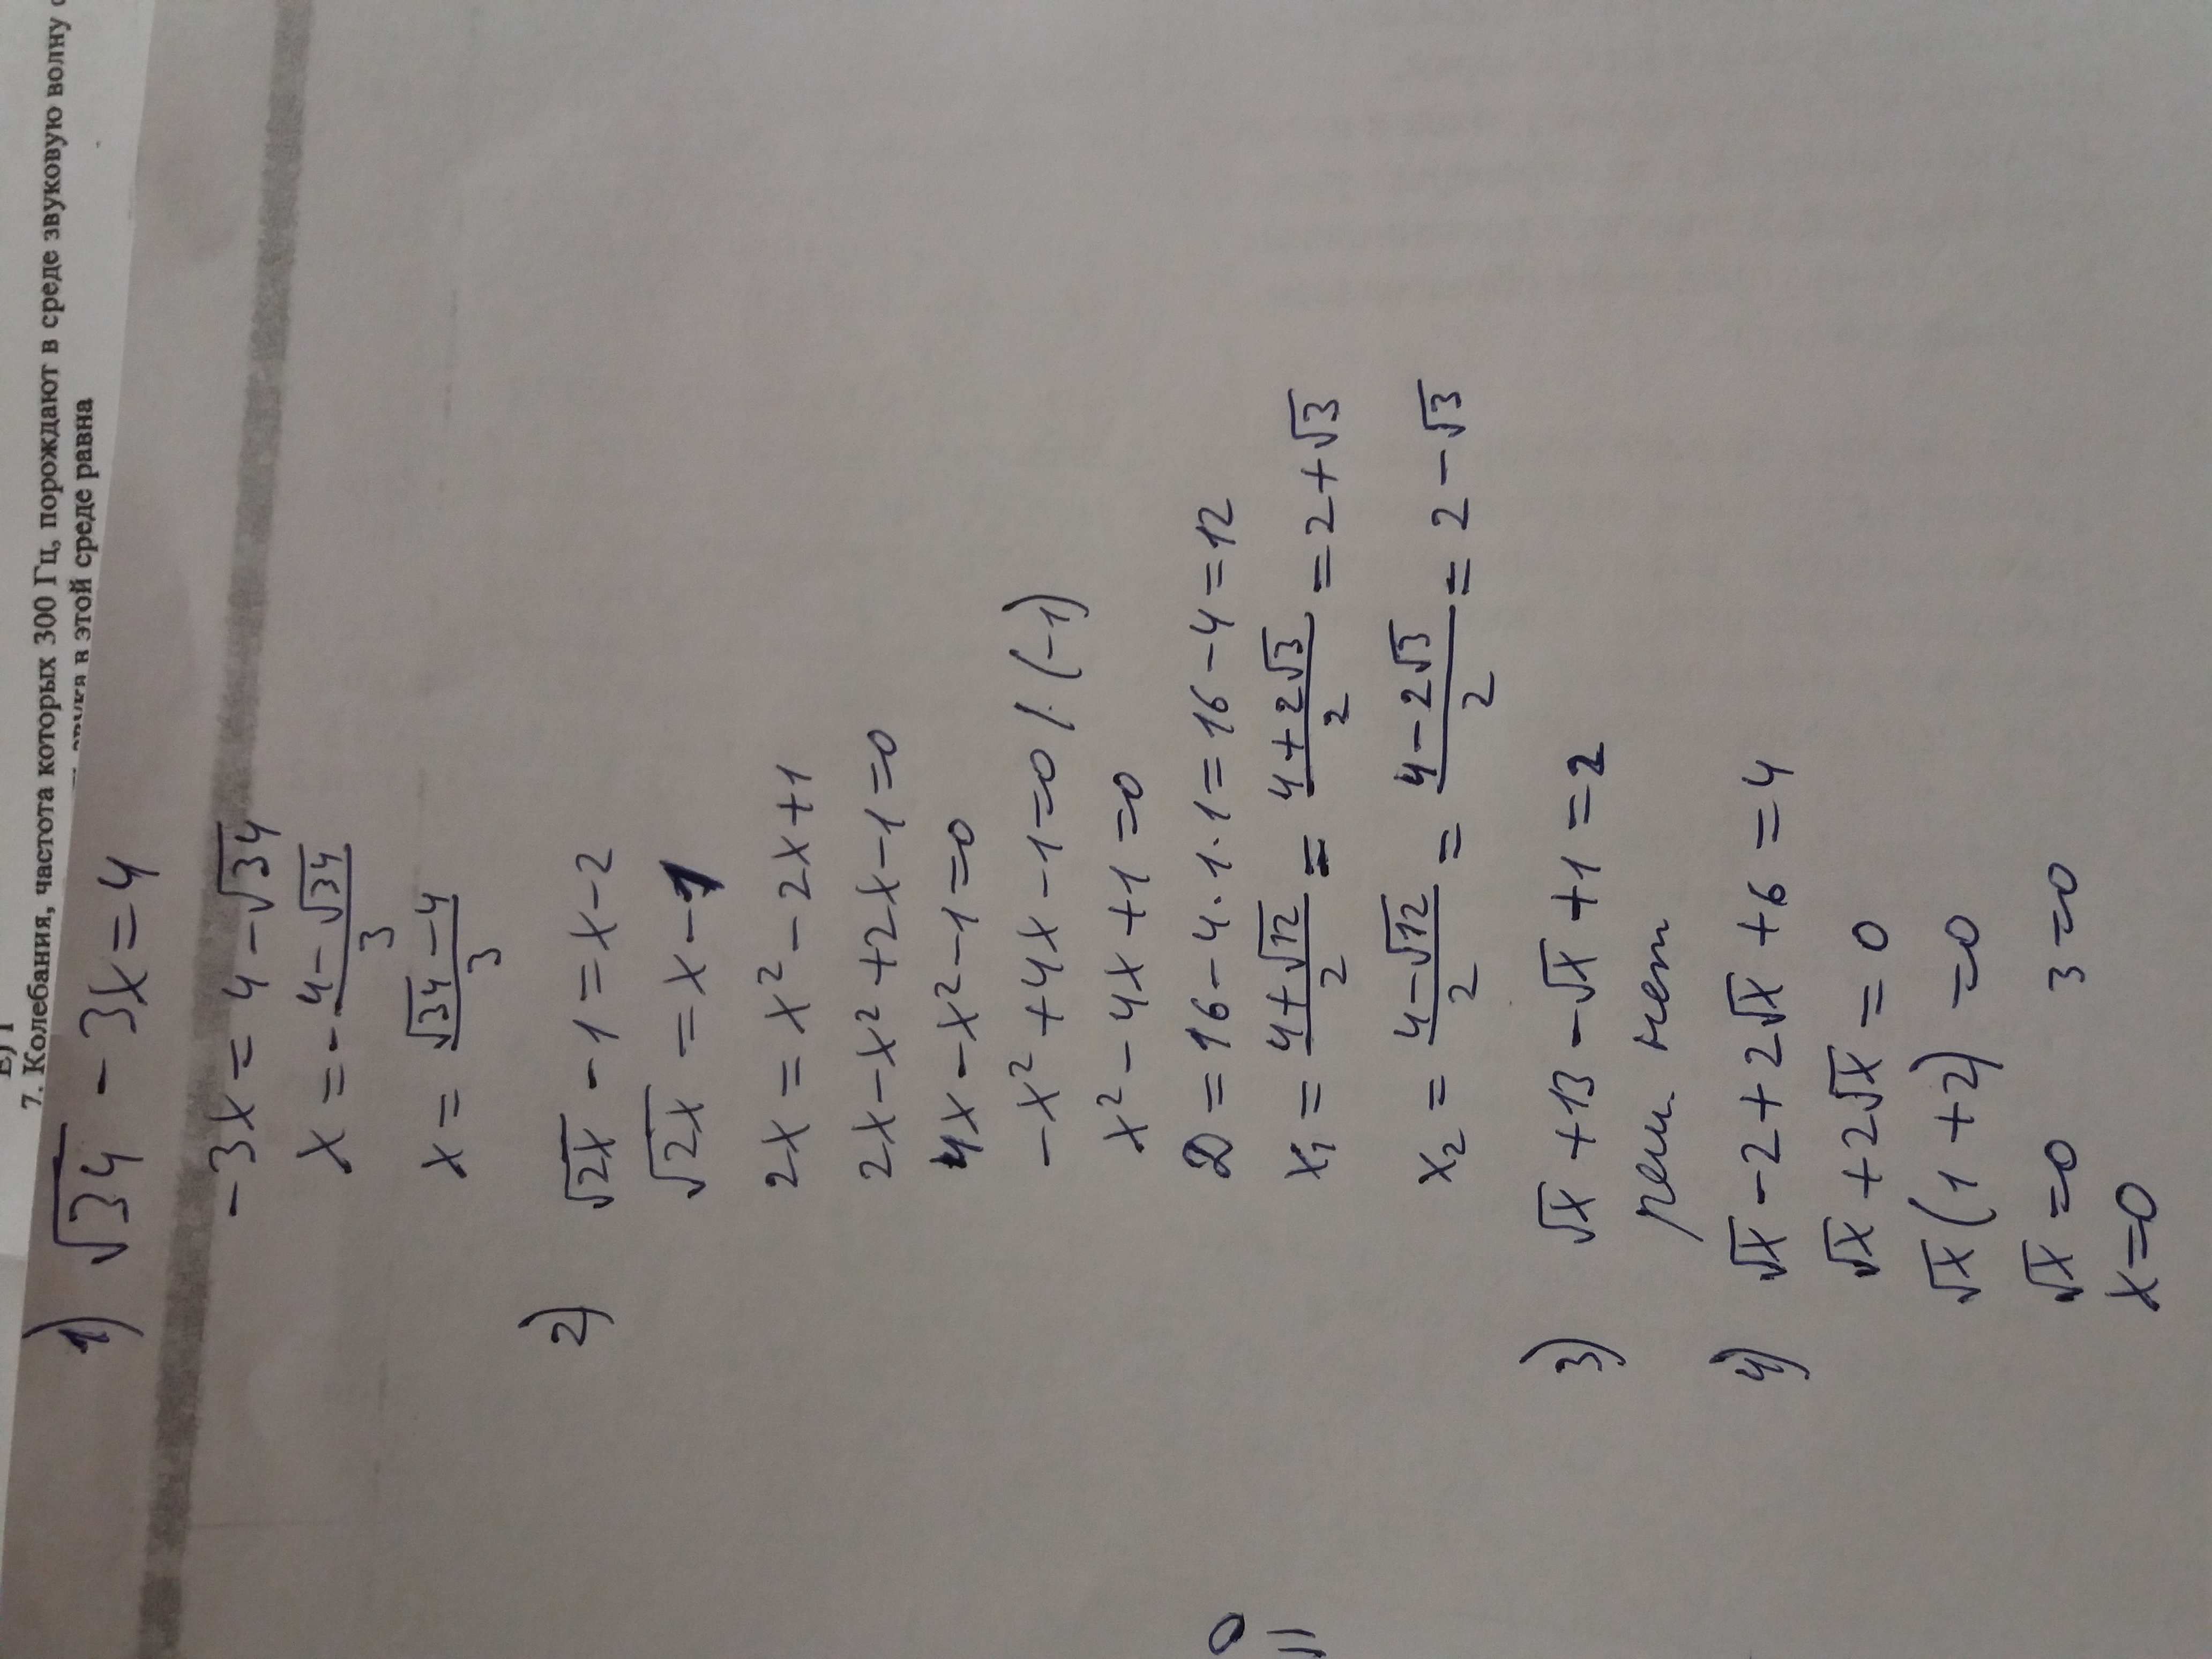 Е) 1
7. Колебания, частота которых 300 Гц, порождают в среде звуковую волну
звука в этой среде равна
1) √34 - 3x = 4
-3x = 4 - √34
x = - (4 - √34)/3
x = (√34 - 4)/3
2) √2x - 1 = x - 2
√2x = x - 1
2x = x² - 2x + 1
2x - x² + 2x - 1 = 0
4x - x² - 1 = 0
-x² + 4x - 1 = 0 / · (-1)
x² - 4x + 1 = 0
D = 16 - 4 · 1 · 1 = 16 - 4 = 12
x₁ = (4 + √12)/2 = (4 + 2√3)/2 = 2 + √3
x₂ = (4 - √12)/2 = (4 - 2√3)/2 = 2 - √3
3) √x + 13 - √x + 1 = 2
реш. нет
4) √x - 2 + 2√x + 6 = 4
√x + 2√x = 0
√x (1 + 2) = 0
√x = 0 3 = 0
x = 0